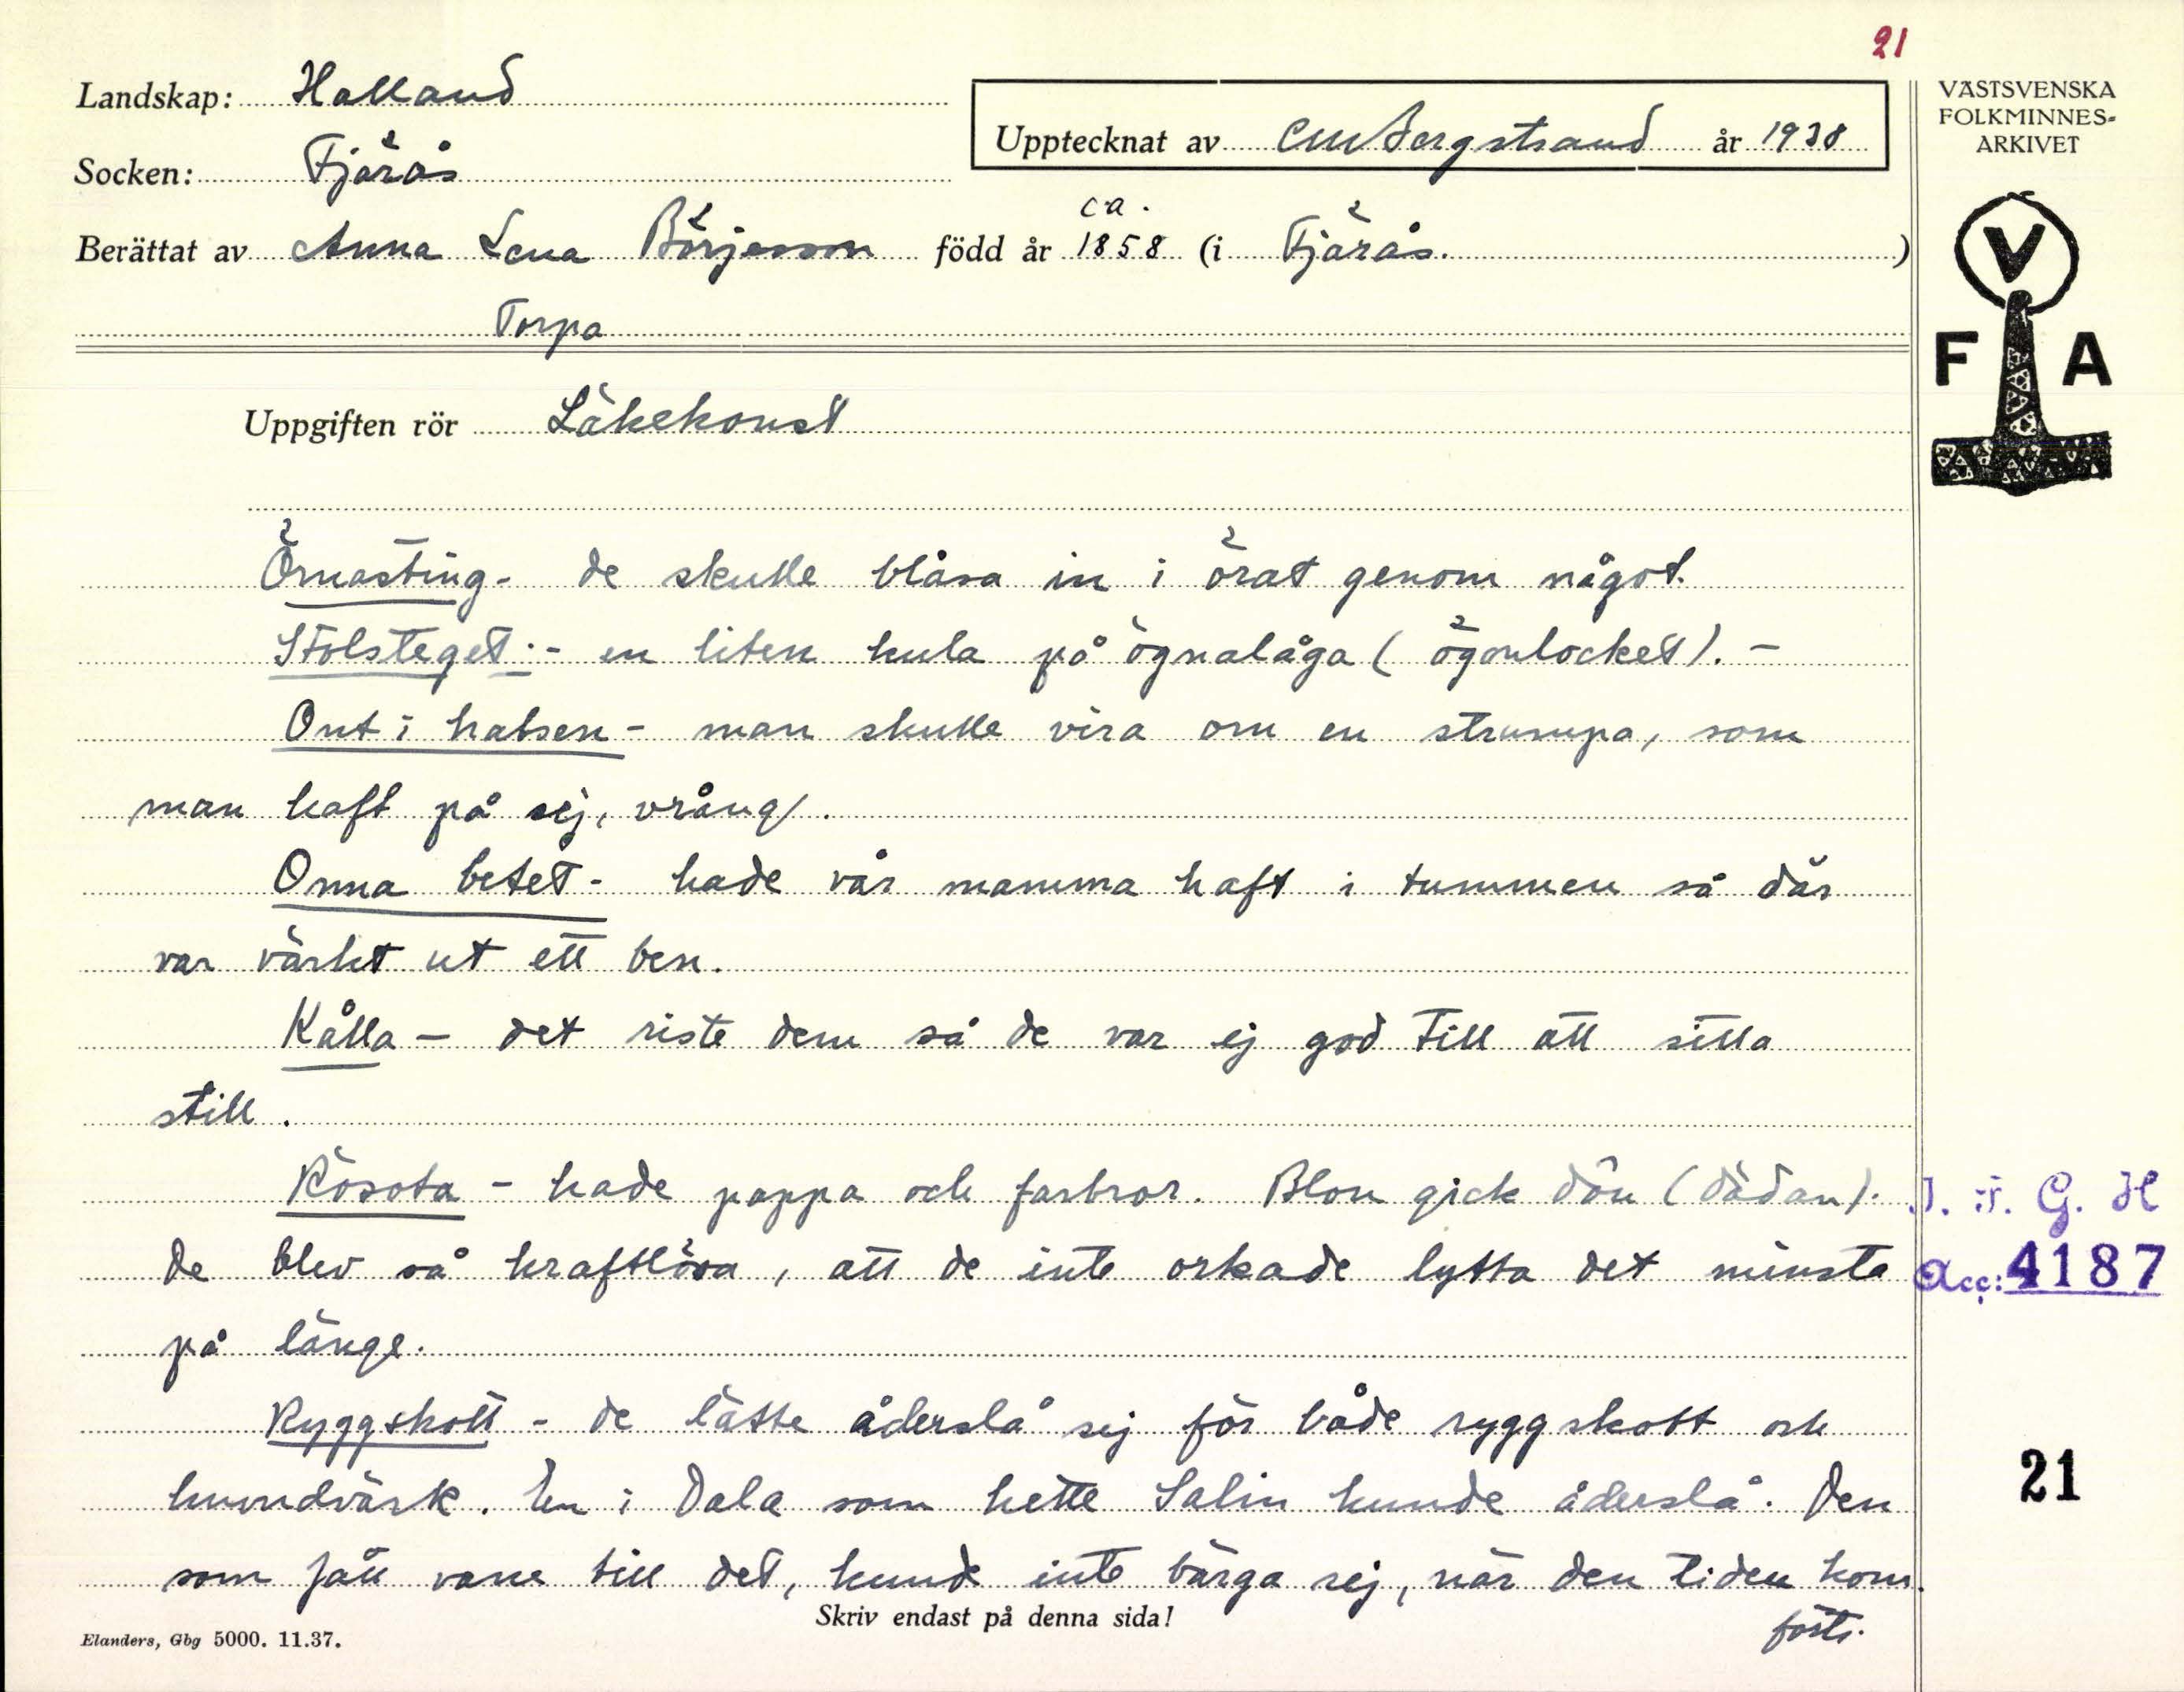 21
Landskap: Halland
Upptecknat av CMBergstrand år 1938
VÄSTSVENSKA
FOLKMINNES-
ARKIVET
Socken: Fjärås
ca.
Berättat av Anna Lena Börjesson född år 1858 (i Fjärås.)
Torpa
V
F A
Uppgiften rör Läkekonst
Örnasting- de skulle blåsa in i örat genom något.
Stolsteget:- en liten kula på ögnalåga (ögonlocket). -
Ont i halsen- man skulle vira om en strumpa, som
man haft på sej, vrång/.
Onna betet- hade vår mamma haft i tummen så där
var värkt ut ett ben.
Kålla - det riste dem så de var ej god till att sitta
still.
Rösota - hade pappa och farbror. Blon gick dön (dädan).
I. F. G. H
De blev så kraftlösa, att de inte orkade lytta det minsta
Acc: 4187
på länge.
Ryggskott - de lätte åderslå sej för både ryggskott och
huvudvärk. En i Dala som hette Salin kunde åderslå. Den
21
som fått vane till det, kunde inte bärga sej, när den tiden kom.
Skriv endast på denna sida!
forts.
Elanders, Gbg 5000. 11.37.